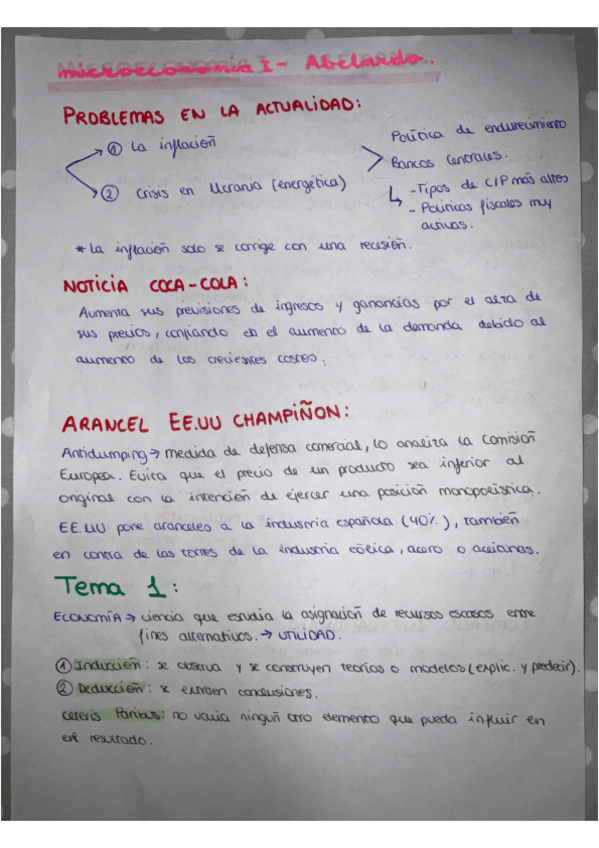 microeconomía I - Abelardo.
PROBLEMAS EN LA ACTUALIDAD:
① La inflación
② Crisis en Ucrania (energética)
Política de endurecimiento
Bancos Centrales.
-Tipos de C/P más altos
- Políticas fiscales muy
activas.
* La inflación solo se corrige con una recesión.
NOTICIA COCA-COLA:
Aumenta sus previsiones de ingresos y ganancias por el alza de
sus precios, confiando en el aumento de la demanda debido al
aumento de los crecientes costes.
ARANCEL EE.UU CHAMPIÑON:
Antidumping → medida de defensa comercial, lo analiza la Comisión
Europea. Evita que el precio de un producto sea inferior al
original con la intención de ejercer una posición monopolística.
EE.UU pone aranceles a la industria española (40%), también
en contra de las torres de la industria eólica, acero o aceitunas.
Tema 1:
ECONOMÍA → ciencia que estudia la asignación de recursos escasos entre
fines alternativos. → UTILIDAD.
① Inducción: se observa y se construyen teorías o modelos (explic. y predecir).
② Deducción: se extraen conclusiones.
Ceteris Paribus: no varía ningún otro elemento que pueda influir en
el resultado.